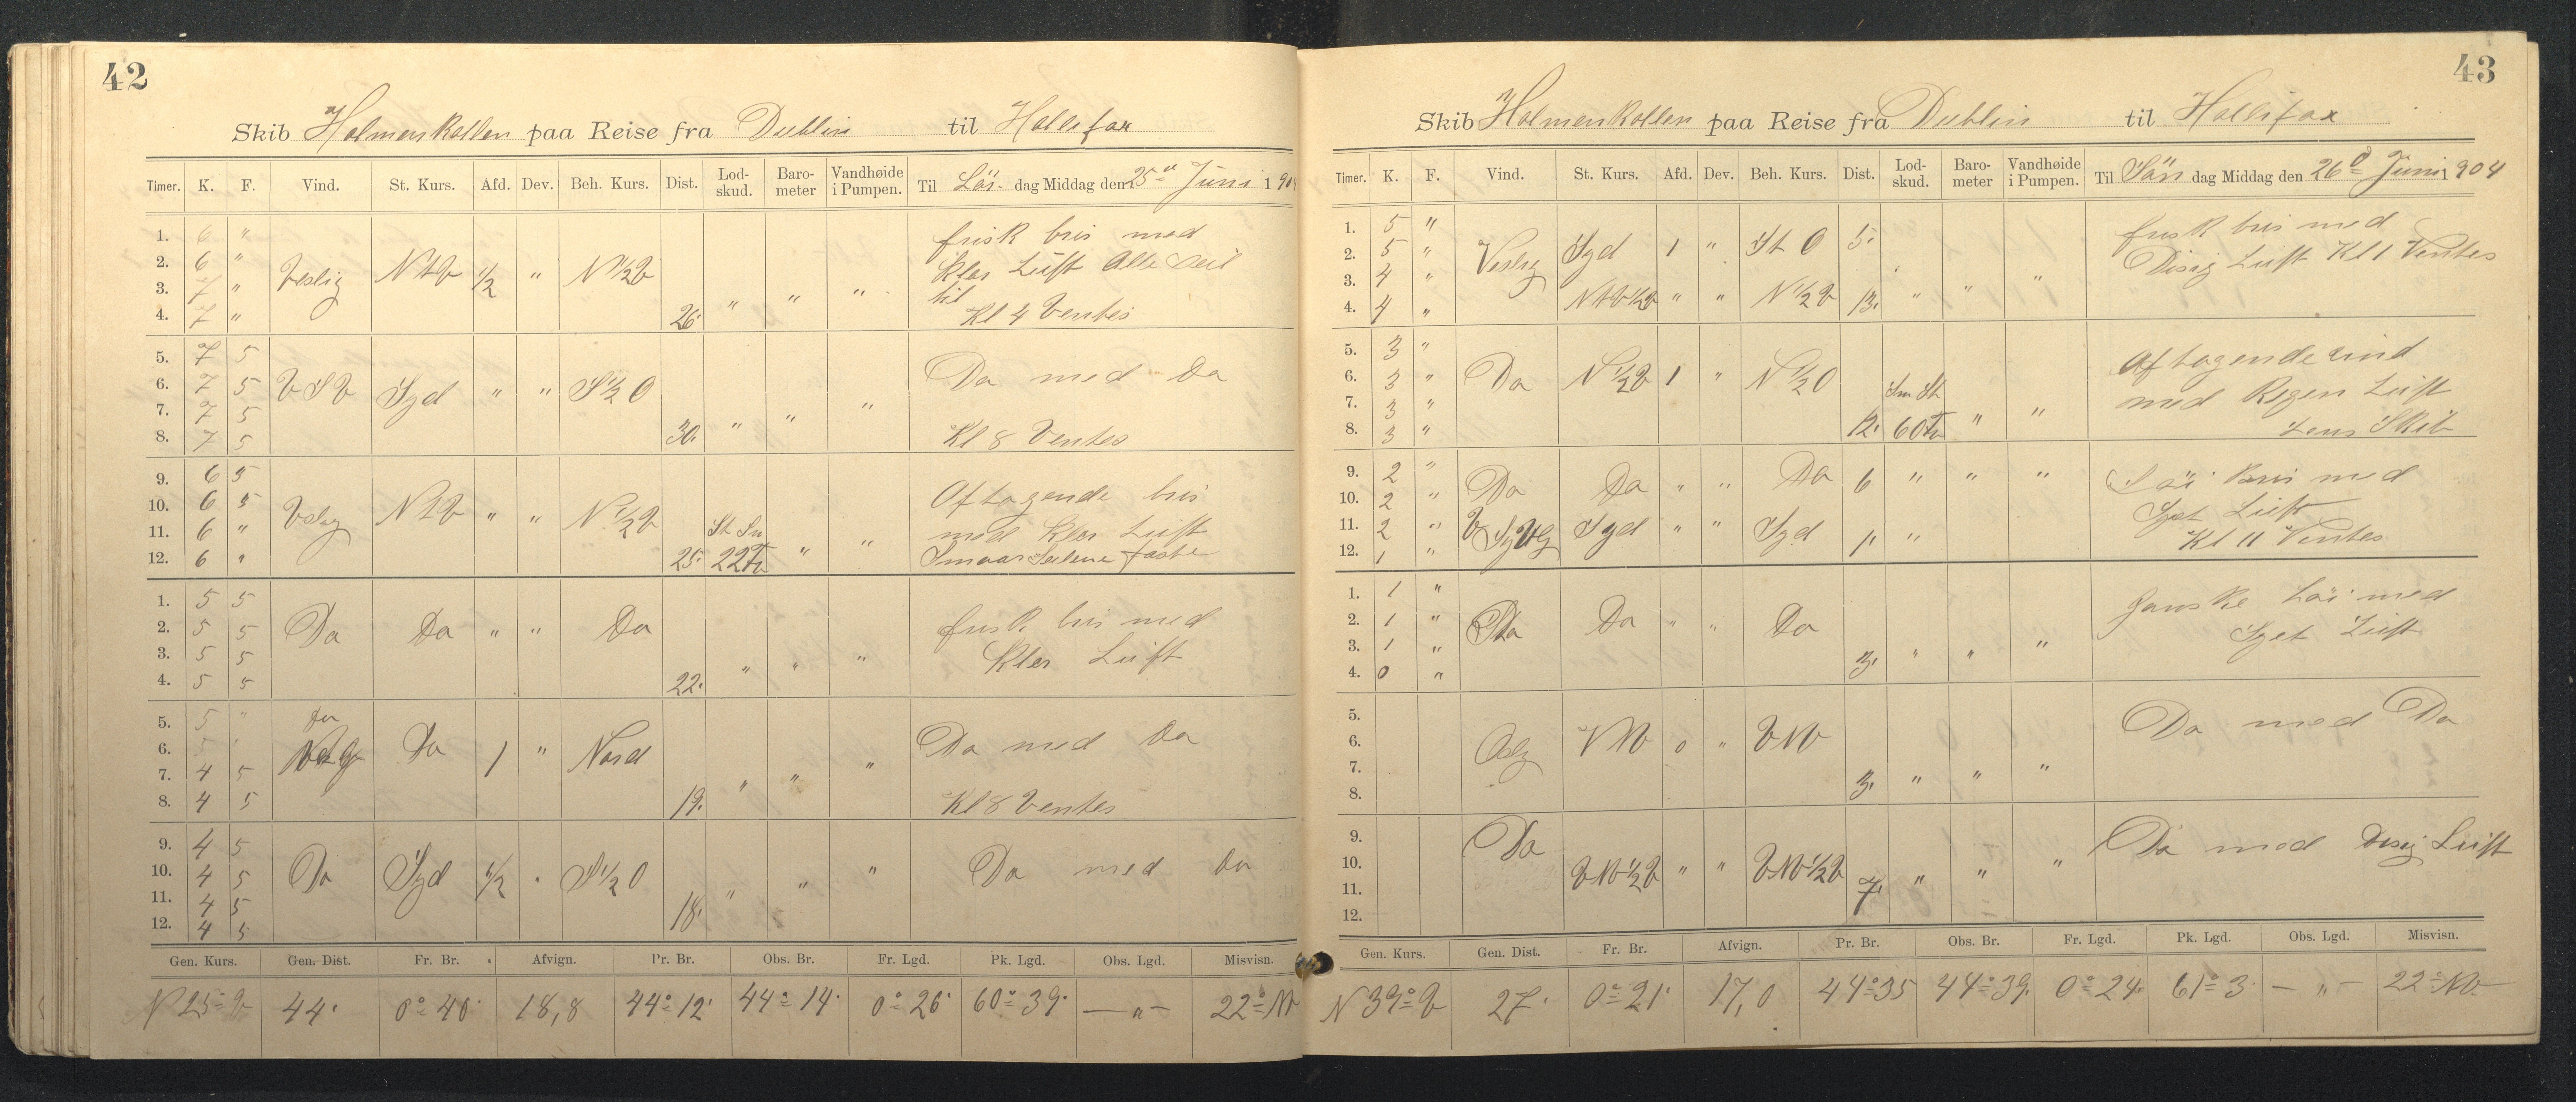 42
Skib Holmenkollen paa Reise fra Dublin til Hallifax
Timer. K. F. Vind. St. Kurs. Afd. Dev. Beh. Kurs. Dist. Lod-skud. Baro-meter Vandhøide i Pumpen. Til Lör dag Middag den 25de Juni 1904
1. 6 " frisk bris med
2. 6 " Veslig NtV 1/2 " N1/2V klar Luft Alle Seil
3. 7 " " " " til
4. 7 " 26. Kl 4 Ventes
5. 7 5 Da med Da
6. 7 5 VSV Syd " " S1/2O
7. 7 5 " " "
8. 7 5 30. Kl 8 Ventes
9. 6 5 Aftagende bris
10. 6 5 Veslig NtV " " N1/2V med klar Luft
11. 6 " St Sn " "
12. 6 " 25. 22 Fv Smaar Seilene faste
1. 5 5 frisk bris med
2. 5 5 Da Da " " Da
3. 5 5 " " " Klar Luft
4. 5 5 22.
5. 5 " Da 1 " Nord Da med Da
6. 5 "
7. 4 5 " " "
8. 4 5 19. Kl 8 Ventes
9. 4 5
10. 4 5 Da Syd 1/2 " S1/2O " " " Da med Da
11. 4 5
12. 4 5 18.
Gen. Kurs. Gen. Dist. Fr. Br. Afvign. Pr. Br. Obs. Br. Fr. Lgd. Pk. Lgd. Obs. Lgd. Misvisn.
N 25° V 44. 0° 40' 18,8 44° 12' 44° 14' 0° 26' 60° 39' — " — 22° NV
43
Skib Holmenkollen paa Reise fra Dublin til Hallifax
Timer. K. F. Vind. St. Kurs. Afd. Dev. Beh. Kurs. Dist. Lod-skud. Baro-meter Vandhøide i Pumpen. Til Sön dag Middag den 26de Juni 1904
1. 5 " frisk bris med
2. 5 " Veslig Syd 1 " St O 5. Disig Luft Kl 1 Ventes
3. 4 "
4. 4 " NtV1/2V " " N1/2V 13. " " "
5. 3 " Aftagende vind
6. 3 " Da N1/2V 1 " N1/2O Sm St med Regen Luft
7. 3 " " "
8. 3 " 12. 60 Fv Lens Skib
9. 2 " Da Da " " Da 6 " " " Löi bris med
10. 2 " Tyet Luft
11. 2 " Syd " " Syd 1" "
12. 1 " Kl 11 Ventes
1. 1 " Ganske Löi med
2. 1 " Da Da " " Da Tyet Luft
3. 1 " " " "
4. 0 " 3.
5. Da med Da
6. Oslig VNV 0 " VNV
7. " " "
8. 3.
9. Da Da med Disig Luft
10. VNV1/2V " " VNV1/2V " " "
11. 7.
12.
Gen. Kurs. Gen. Dist. Fr. Br. Afvign. Pr. Br. Obs. Br. Fr. Lgd. Pk. Lgd. Obs. Lgd. Misvisn.
N 39° V 27. 0° 21' 17,0 44° 35 44° 39. 0° 24' 61° 3' — " — 22° NV